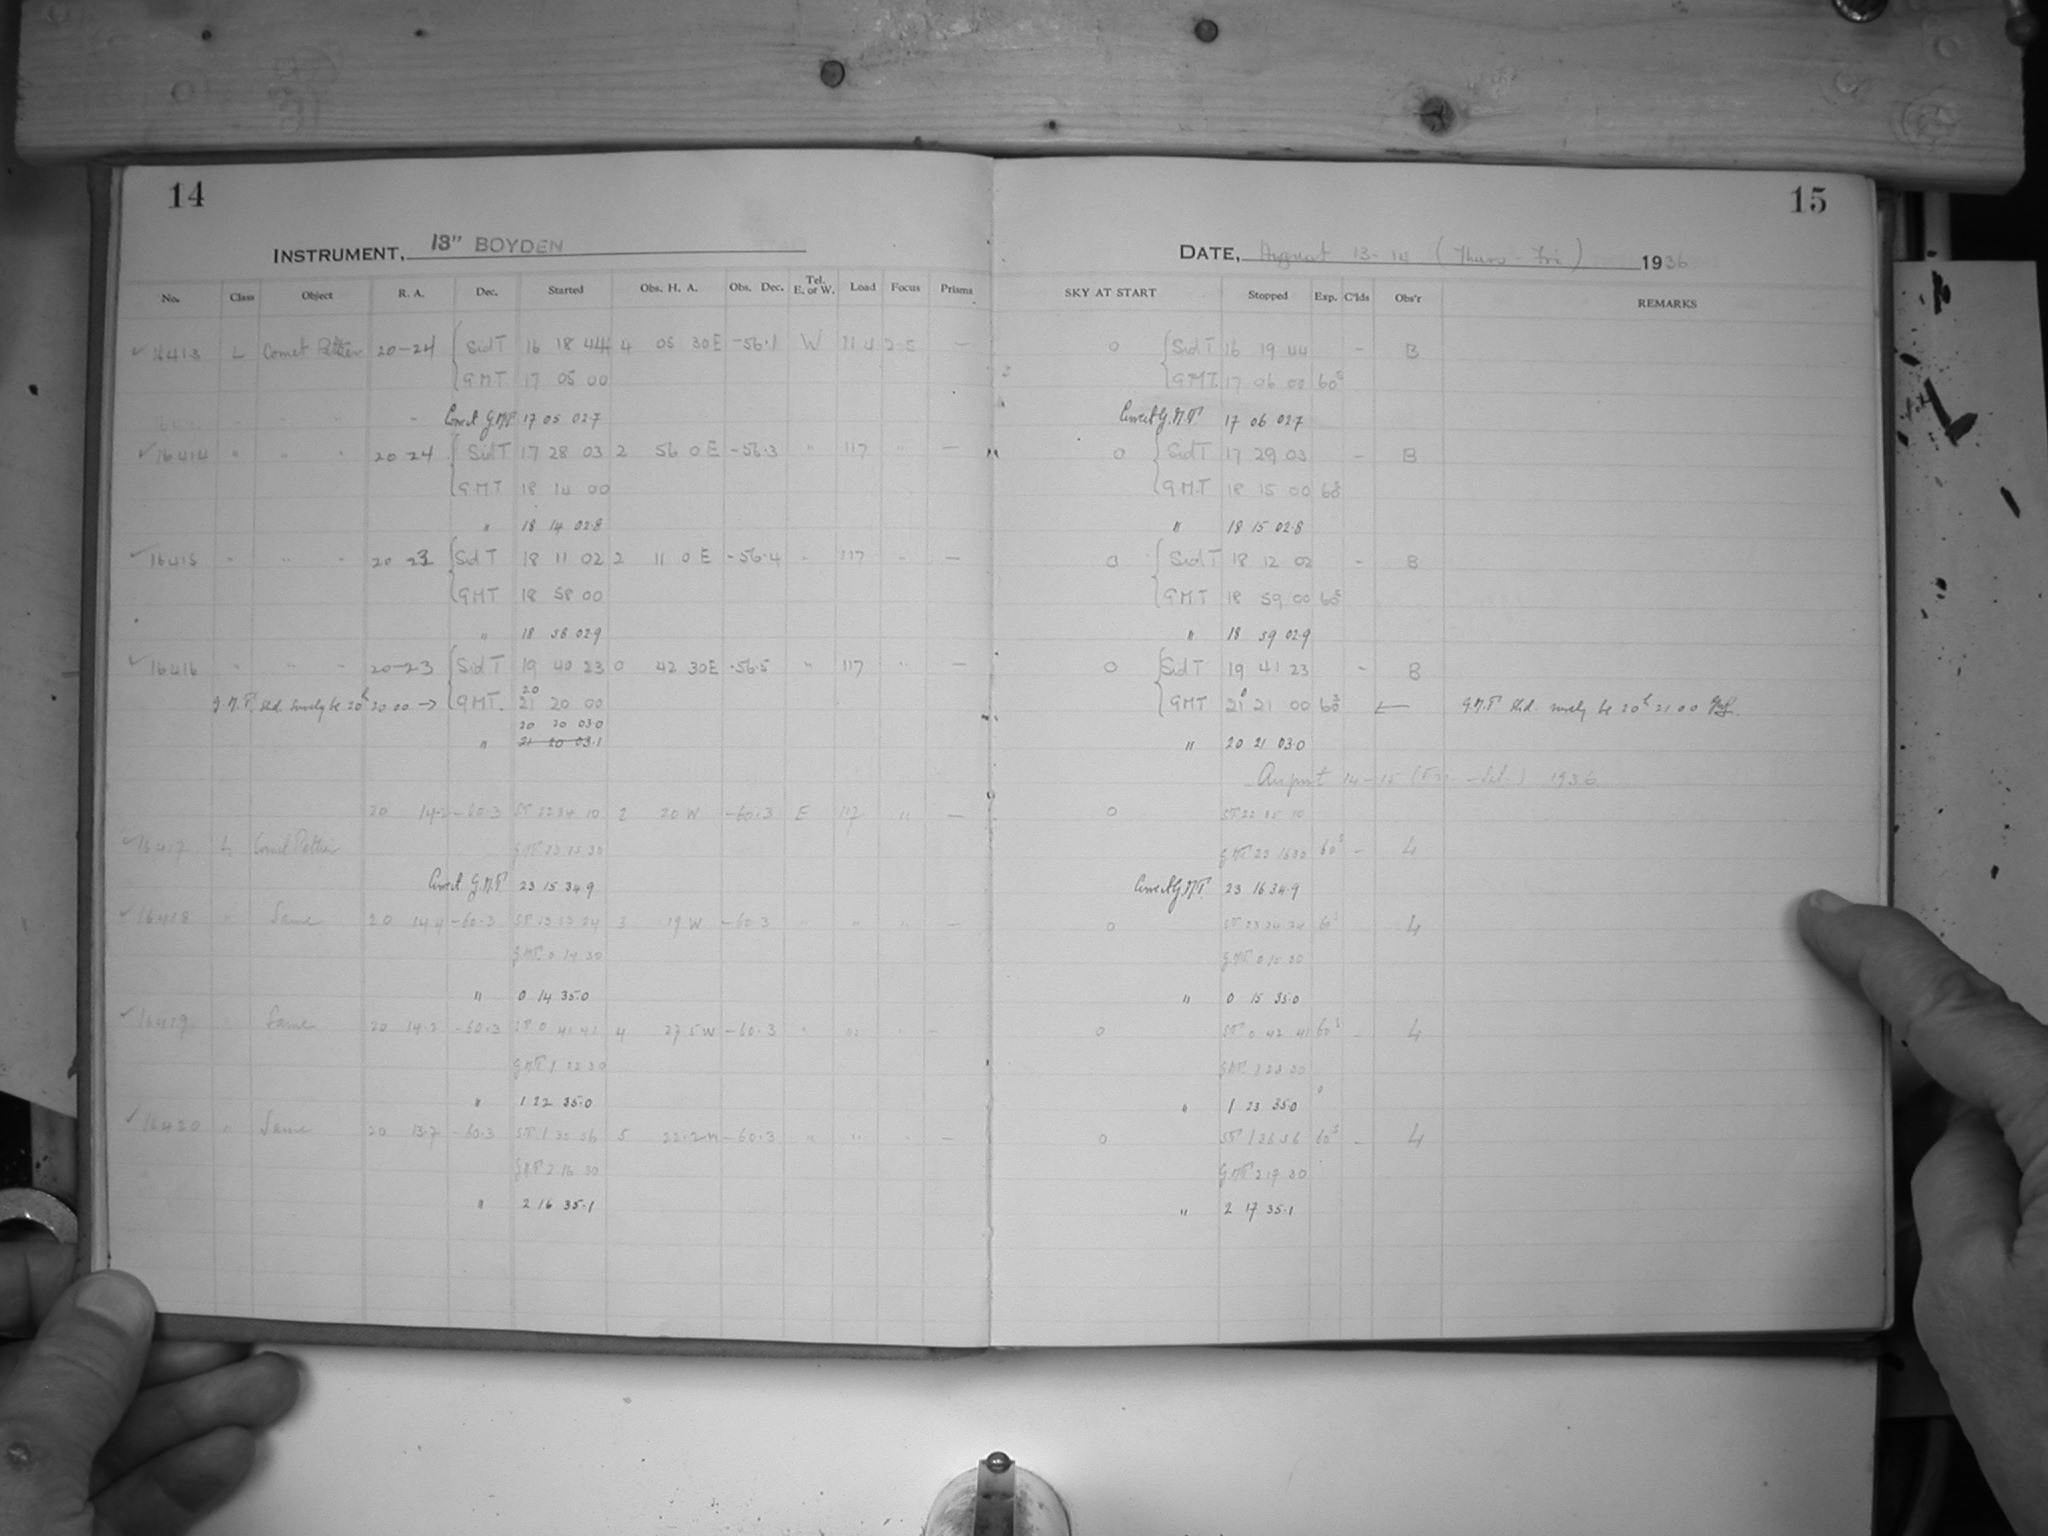 14
INSTRUMENT, 13" BOYDEN
No. Class Object R. A. Dec. Started Obs. H. A. Obs. Dec. Tel. E. or W. Load Focus Prisms
✓16413 L Comet Peltier 20-24 {Sid T 16 18 44 4 05 30 E -56.1 W 114 2.5 —
{GMT 17 05 00
Correct G.M.T. 17 05 02.7
✓16414 " " " 20 24 {Sid T 17 28 03 2 56 0 E -56.3 " 117 " —
{G.M.T 18 14 00
" 18 14 02.8
✓16415 " " " 20 23 {Sid T 18 11 02 2 11 0 E -56.4 " 117 " —
{GMT 18 58 00
" 18 58 02.9
✓16416 " " " 20-23 {Sid T 19 40 23 0 42 30 E -56.5 " 117 " —
20
G.M.T. shd. surely be 20h 20 00 → {GMT. 21 20 00
20 20 03.0
" 21 20 03.1
20 14.2 -60.3 ST 22 34 10 2 20 W -60.3 E 117 " —
✓16417 L Comet Peltier GMT 23 15 30
Correct G.M.T. 23 15 34.9
✓16418 " Same 20 14.4 -60.3 ST 23 33 24 3 19 W -60.3 " " " —
GMT. 0 14 30
" 0 14 35.0
✓16419 " Same 20 14.2 -60.3 ST 0 41 41 4 27.5 W -60.3 " " " —
GMT 1 22 30
" 1 22 35.0
✓16420 " Same 20 13.7 -60.3 ST 1 35 56 5 22.2 W -60.3 " " " —
GMT 2 16 30
" 2 16 35.1
15
DATE, August 13-14 (Thurs - Fri) 1936
SKY AT START Stopped Exp. C'lds Obs'r REMARKS
0 {Sid T 16 19 44 - B
{GMT. 17 06 00 60s
Correct G.M.T. 17 06 02.7
0 {Sid T 17 29 03 - B
{G.M.T 18 15 00 60s
" 18 15 02.8
0 {Sid T 18 12 02 - B
{G.M.T 18 59 00 60s
" 18 59 02.9
0 {Sid T 19 41 23 - B
0
{GMT 21 21 00 60s ← G.M.T. shd. surely be 20h 21 00
" 20 21 03.0
August 14-15 (Fri - Sat.) 1936
0 ST 22 35 10
GMT 23 16 30 60s - L
Correct G.M.T. 23 16 34.9
0 ST 23 34 24 60s L
GMT. 0 15 30
" 0 15 35.0
0 ST 0 42 41 60s - L
GMT. 1 23 30
" 1 23 35.0
0 ST 1 36 56 60s - L
GMT 2 17 30
" 2 17 35.1